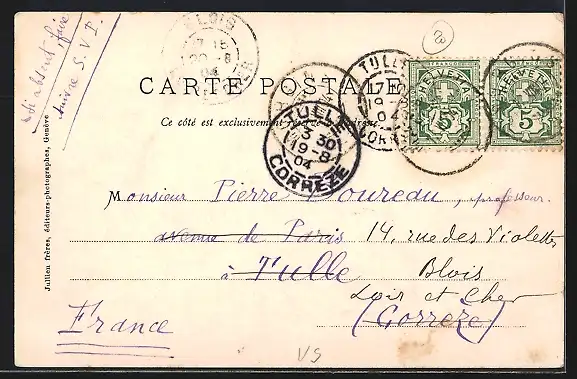 Si absent, faire
suivre S.V.P.
BLOIS
CARTE POSTALE
Ce côté est exclusivement réservé à l'adresse.
TULLE
3 30
19-8
04
CORREZE
TULLE
19-8
04
CORREZE
HELVETIA
5
HELVETIA
5
Monsieur Pierre Poureau, professeur.
avenue de Paris 14, rue des Violettes
à Tulle Blois
Loir et Cher
(Corrèze)
France
VS
Jullien frères, éditeurs-photographes, Genève